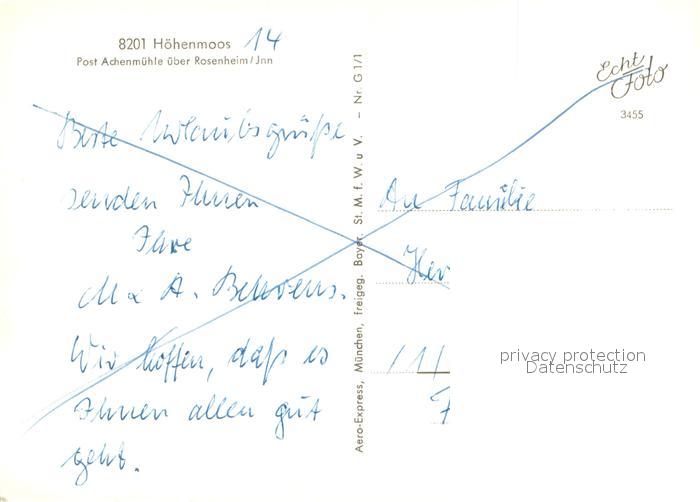 8201 Höhenmoos 14
Post Achenmühle über Rosenheim/Jnn
Beste Urlaubsgrüße
senden Ihnen
Ihre
M. A. Behrens.
Wir hoffen, daß es
Ihnen allen gut
geht.
Aero-Express, München, freigeg. Bayer. St. M. f. W. u V. – Nr. G 1/1
Echt Foto
3455
An Familie
Her
privacy protection
Datenschutz